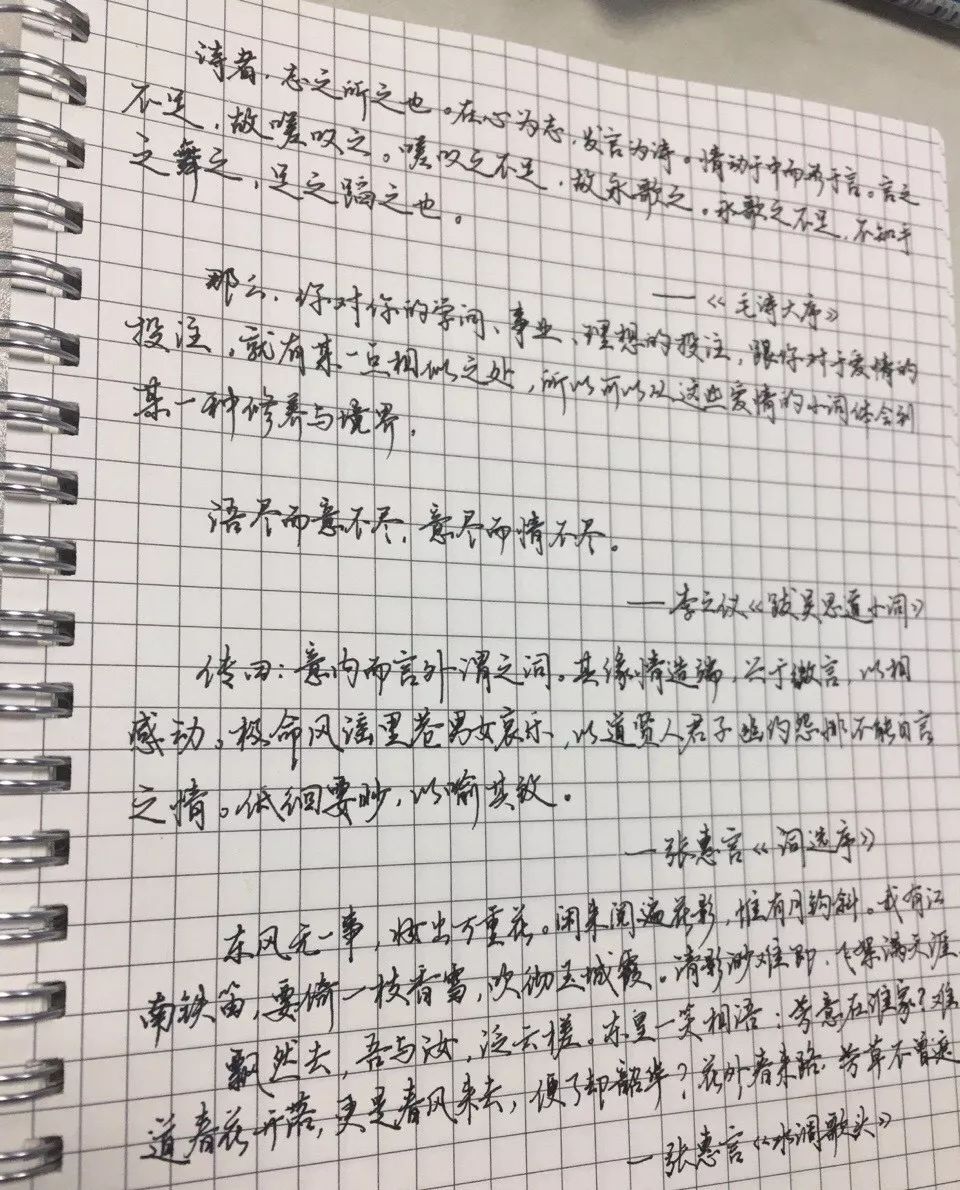 诗者，志之所之也。在心为志，发言为诗。情动于中而形于言。言之
不足，故嗟叹之。嗟叹之不足，故永歌之。永歌之不足，不知手
之舞之，足之蹈之也。
——《毛诗大序》
那么，你对你的学问、事业、理想的投注，跟你对于爱情的
投注，就有某一点相似之处，所以可以从这些爱情的小词体会到
某一种修养与境界。
语尽而意不尽，意尽而情不尽。
—李之仪《跋吴思道小词》
传曰：意内而言外谓之词。其缘情造端，兴于微言，以相
感动。极命风谣里巷男女哀乐，以道贤人君子幽约怨悱不能自言
之情。低徊要眇，以喻其致。
—张惠言《词选序》
东风无一事，妆出万重花。闲来阅遍花影，惟有月钩斜。我有江
南铁笛，要倚一枝香雪，吹彻玉城霞。清影渺难即，飞絮满天涯。
飘然去，吾与汝，泛云槎。东皇一笑相语：芳意在谁家？难
道春花开落，更是春风来去，便了却韶华？花外春来路，芳草不曾遮
—张惠言《水调歌头》